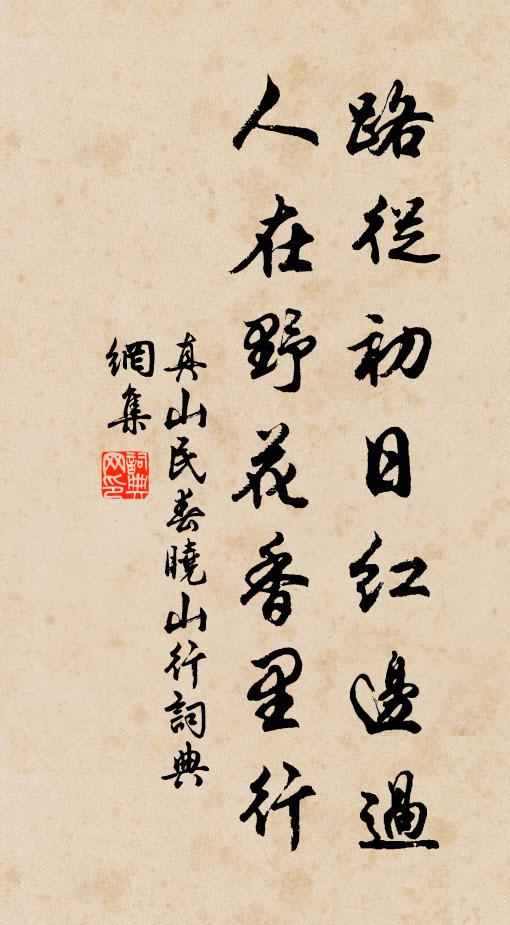 路從初日紅邊過
人在野花香里行
真山民春曉山行詞典
網集
詞典
网印